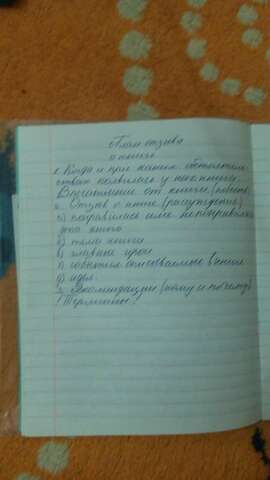 План отзыва
о книге
1. Когда и при каких обстоятель
ствах появилась у нас книга.
Впечатление от книги (повеств)
2. Отзыв о книге (рассуждение)
а) понравилась или не понравилась
эта книга
б) тема книги
в) главные герои
г) события описываемые в книге
д) идея.
3. Рекомендации (кому и почему)
! Термины!